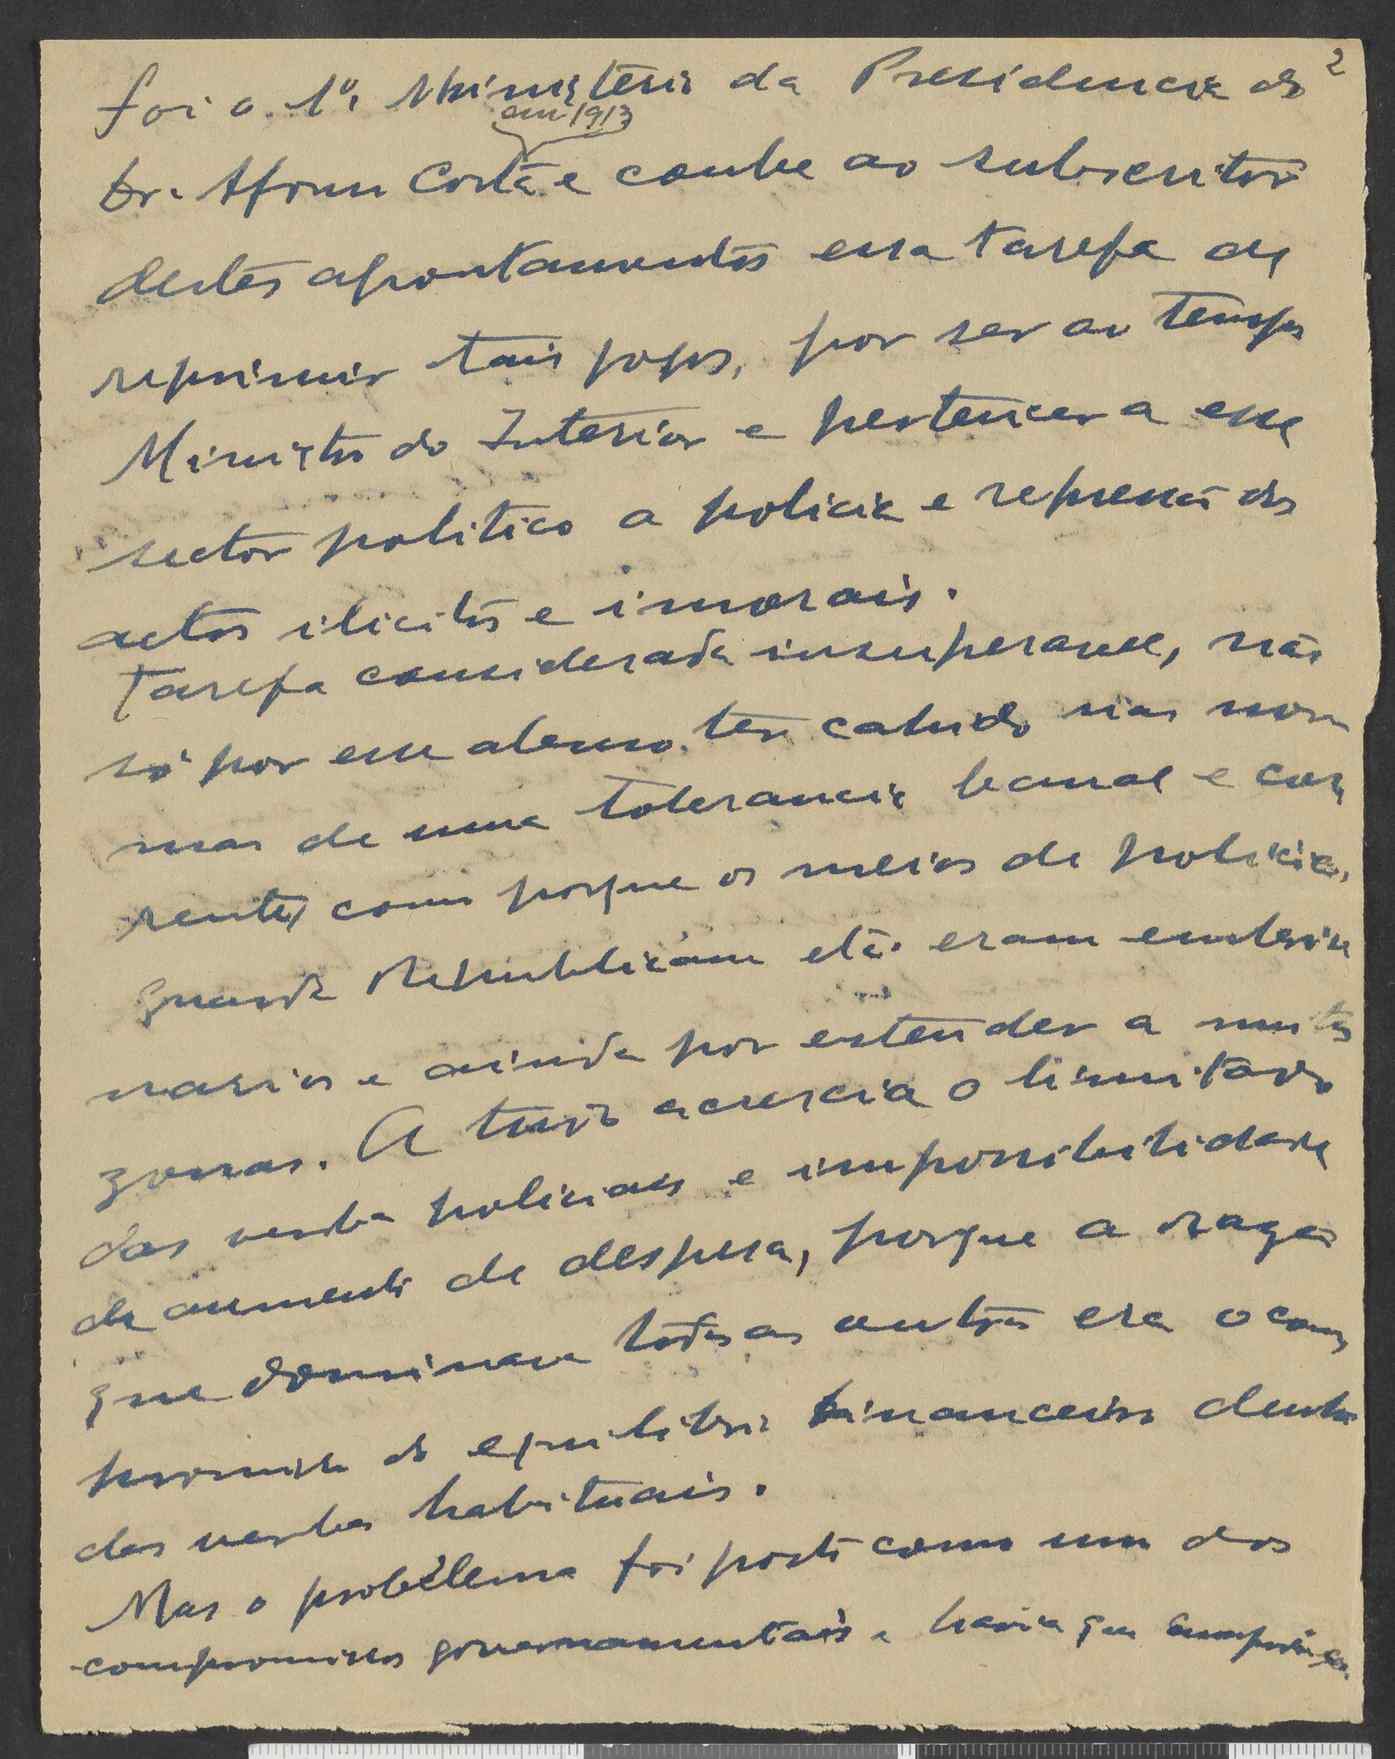 2
foi o 1º Ministério da Presidencia do
em 1913
Dr. Afonso Costa e coube ao subscritor
destes apontamentos essa tarefa de
reprimir tais jogos, por ser ao tempo
Ministro do Interior e pertencer a esse
sector politico a policia e repressão dos
actos ilicitos e imorais.
Tarefa considerada insuperavel, não
só por esse abuso ter cahido nas nor
mas de uma tolerancia banal e cor
rente, como porque os meios de policia,
guarda Republicana etc. eram
narios e ainda por estender a muitas
zonas. A tudo acrescia o limitado
das verba policiais e impossibilidade
de aumento de despesa, porque a razão
que dominava todas as outras era o com
promisso do equilibrio financeiro dentro
das verbas habituais.
Mas o problema foi posto como um dos
compromissos governamentais e havia que cumprir-se.